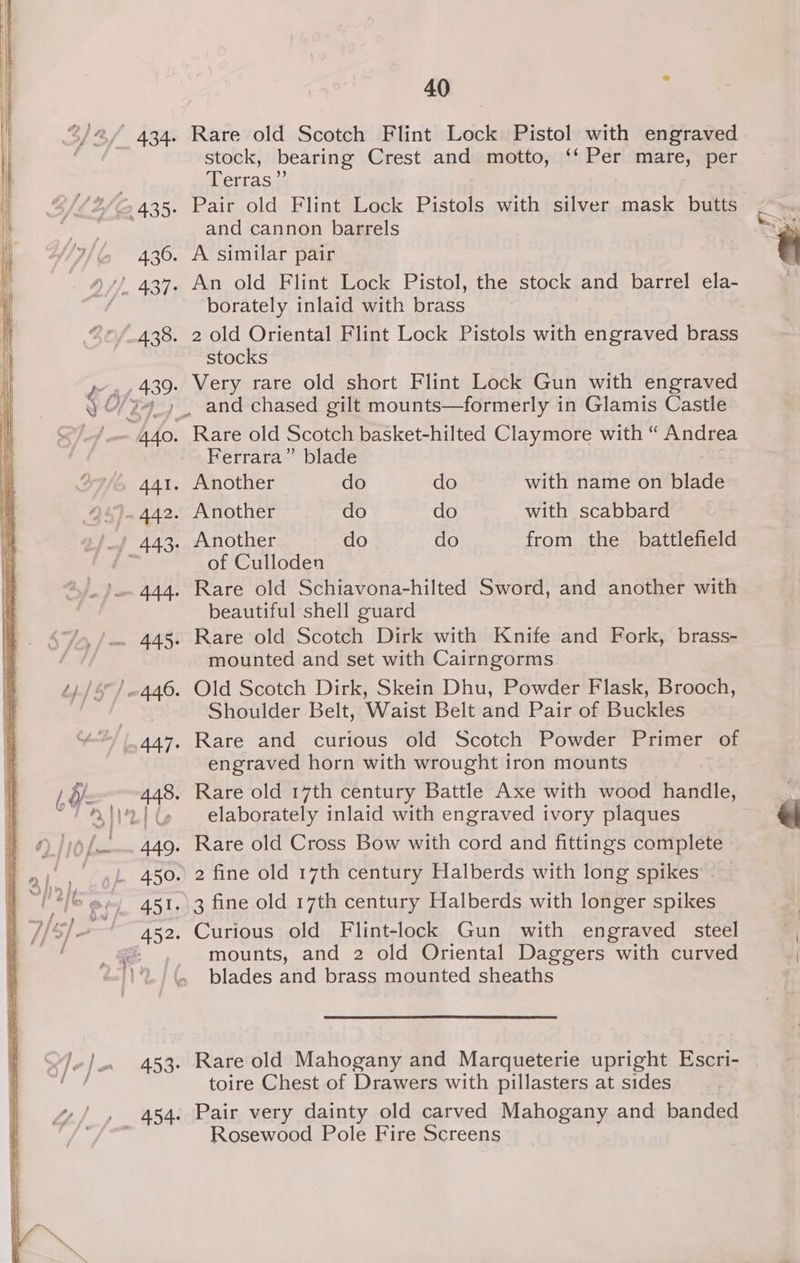 40
434. Rare old Scotch Flint Lock Pistol with engraved
stock, bearing Crest and motto, “Per mare, per
Terras”
435. Pair old Flint Lock Pistols with silver mask butts
and cannon barrels
436. A similar pair
437. An old Flint Lock Pistol, the stock and barrel ela-
borately inlaid with brass
438. 2 old Oriental Flint Lock Pistols with engraved brass
stocks
439. Very rare old short Flint Lock Gun with engraved
and chased gilt mounts—formerly in Glamis Castle
440. Rare old Scotch basket-hilted Claymore with “ Andrea
Ferrara” blade
441. Another do do with name on blade
442. Another do do with scabbard
443. Another do do from the battlefield
of Culloden
444. Rare old Schiavona-hilted Sword, and another with
beautiful shell guard
445. Rare old Scotch Dirk with Knife and Fork, brass-
mounted and set with Cairngorms
446. Old Scotch Dirk, Skein Dhu, Powder Flask, Brooch,
Shoulder Belt, Waist Belt and Pair of Buckles
447. Rare and curious old Scotch Powder Primer of
engraved horn with wrought iron mounts
448. Rare old 17th century Battle Axe with wood handle,
elaborately inlaid with engraved ivory plaques
449. Rare old Cross Bow with cord and fittings complete
450. 2 fine old 17th century Halberds with long spikes
451. 3 fine old 17th century Halberds with longer spikes
452. Curious old Flint-lock Gun with engraved steel
mounts, and 2 old Oriental Daggers with curved
blades and brass mounted sheaths
453. Rare old Mahogany and Marqueterie upright Escri-
toire Chest of Drawers with pillasters at sides
454. Pair very dainty old carved Mahogany and banded
Rosewood Pole Fire Screens